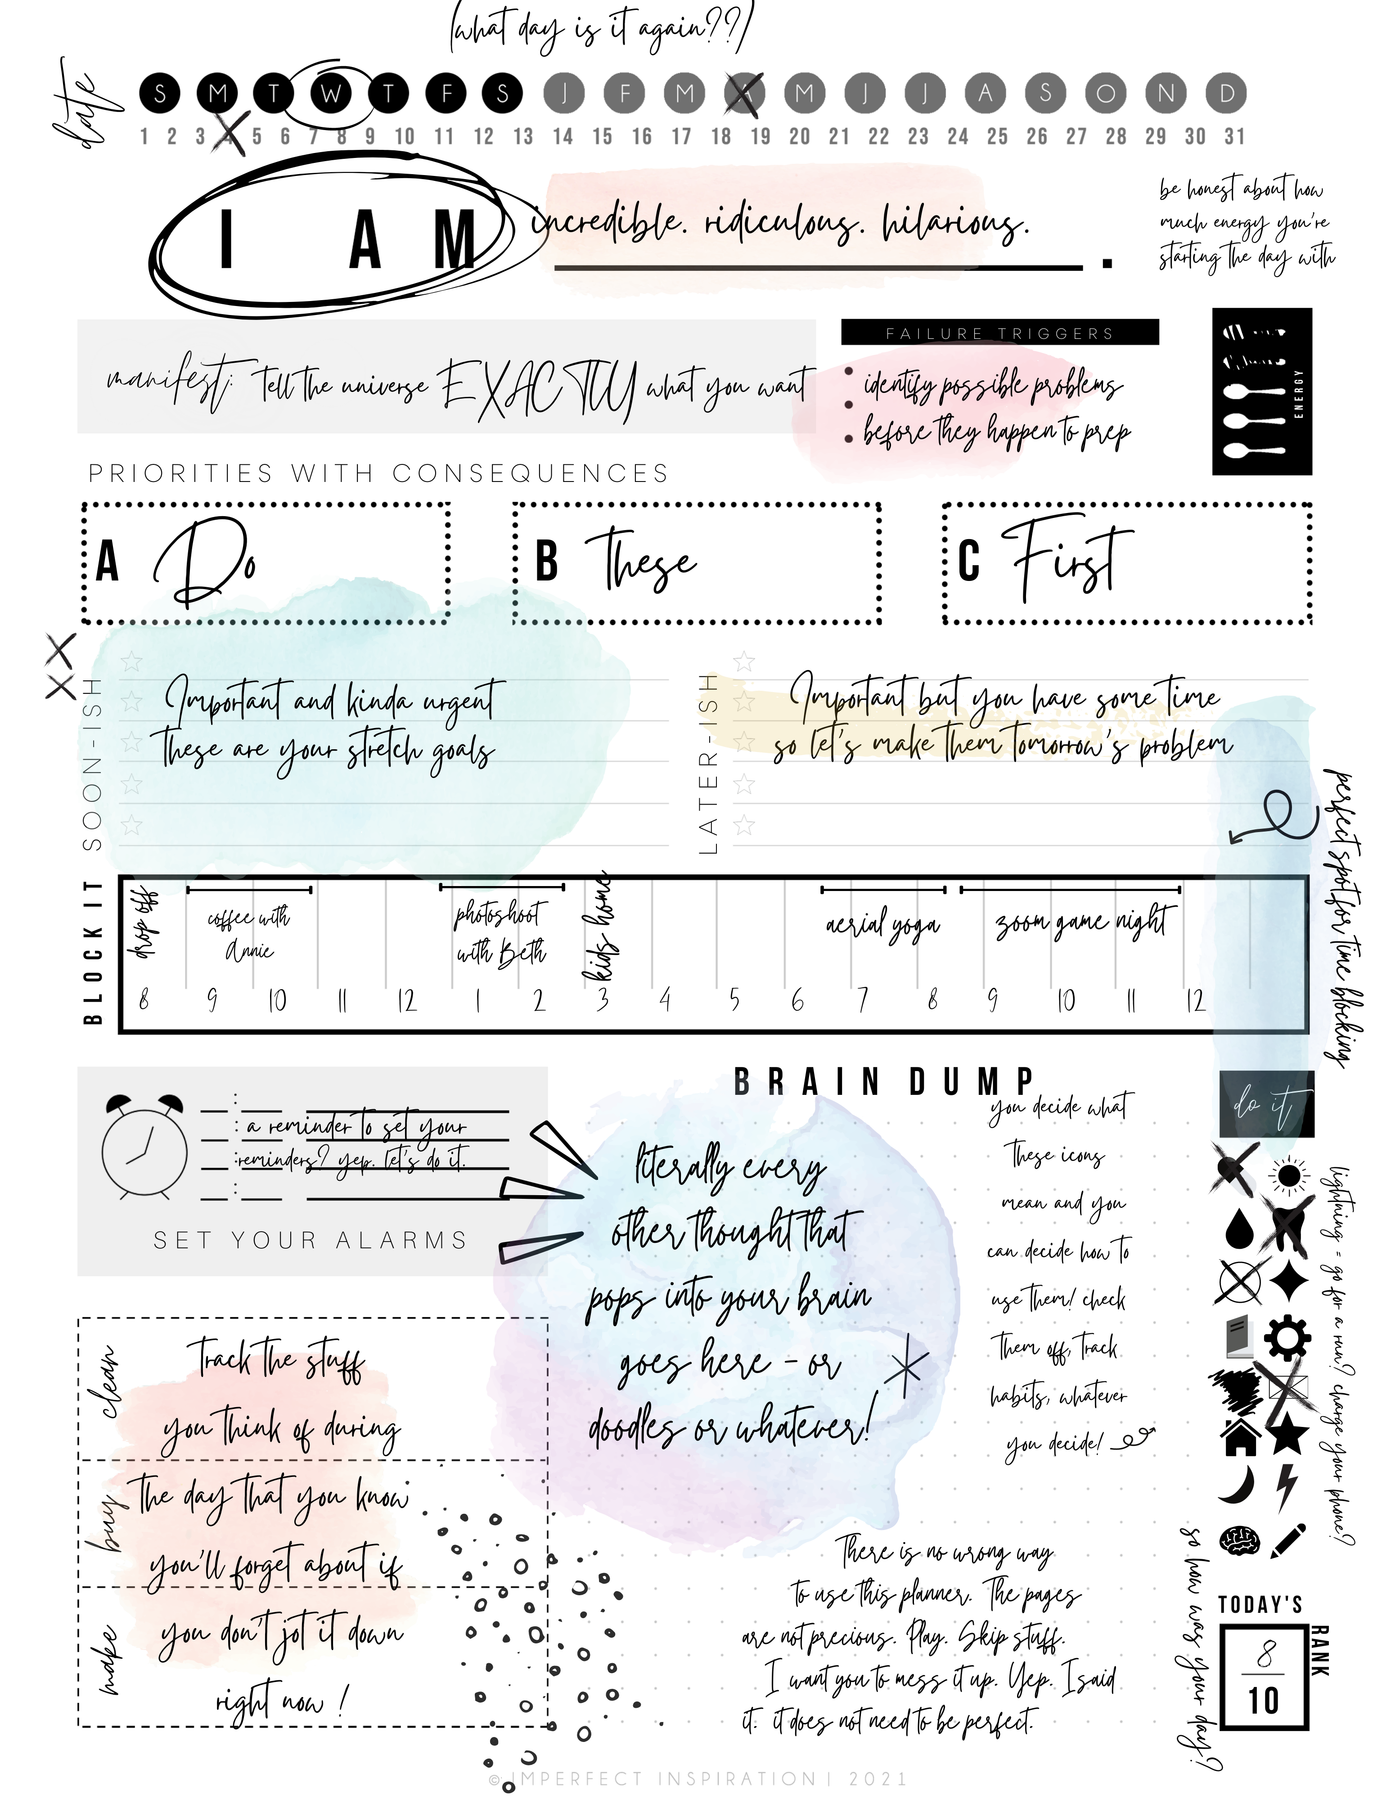 (what day is it again??)
date
S M T W T F S J F M A M J J A S O N D
1 2 3 4 5 6 7 8 9 10 11 12 13 14 15 16 17 18 19 20 21 22 23 24 25 26 27 28 29 30 31
I AM incredible. ridiculous. hilarious. .
be honest about how
much energy you're
starting the day with
manifest: Tell the universe EXACTLY what you want
FAILURE TRIGGERS
identify possible problems
before they happen to prep
ENERGY
PRIORITIES WITH CONSEQUENCES
A Do
B These
C First
SOON-ISH
Important and kinda urgent
these are your stretch goals
LATER-ISH
Important but you have some time
so let's make them tomorrow's problem
perfect spot for time blocking
BLOCK IT
drop off
coffee with
Annie
photoshoot
with Beth
kids home
aerial yoga
zoom game night
8 9 10 11 12 1 2 3 4 5 6 7 8 9 10 11 12
a reminder to set your
reminders? yep. let's do it.
SET YOUR ALARMS
BRAIN DUMP
literally every
other thought that
pops into your brain
goes here - or
doodles or whatever!
you decide what
these icons
mean and you
can decide how to
use them! check
them off, track
habits, whatever
you decide!
do it
lightning = go for a run? charge your phone?
clean
buy
make
Track the stuff
you think of during
the day that you know
you'll forget about if
you don't jot it down
right now !
There is no wrong way
to use this planner. The pages
are not precious. Play. Skip stuff.
I want you to mess it up. Yep. I said
it. it does not need to be perfect.
so how was your day?
TODAY'S
RANK
8
10
© IMPERFECT INSPIRATION | 2021